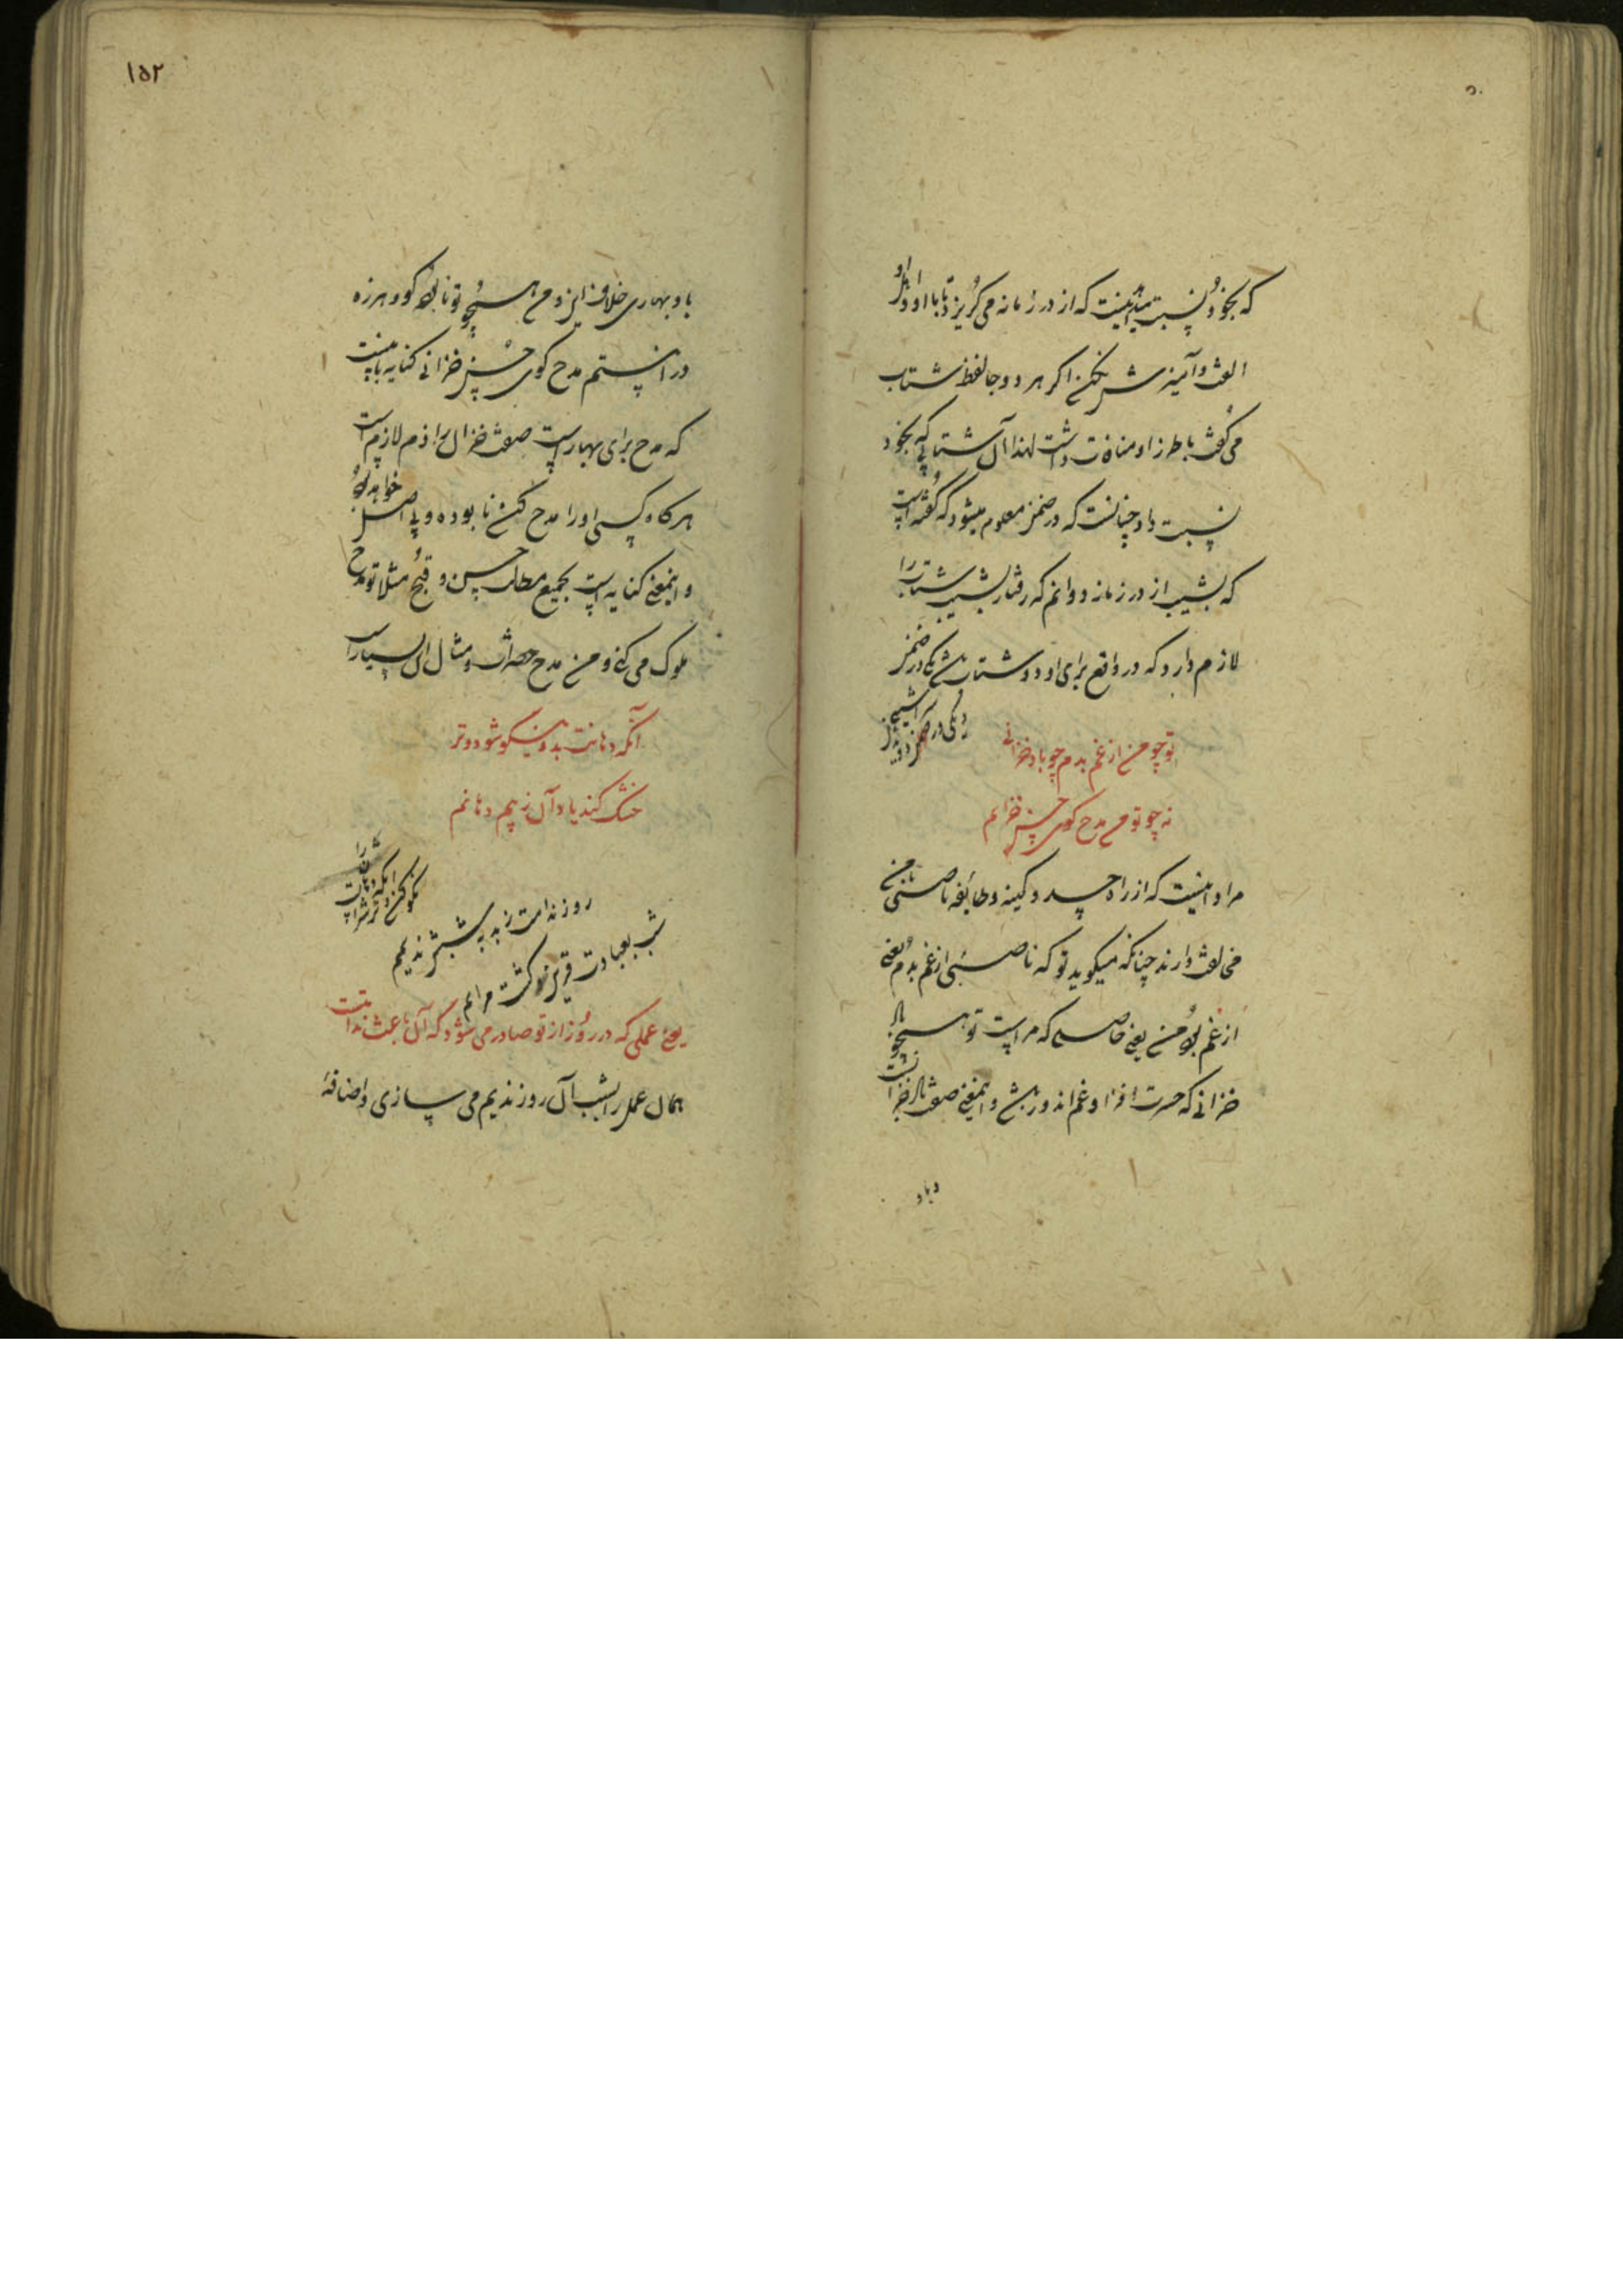 که بخود نسبت میدهد اینست که از در زمانه می گریزد تا با او
الفت و آمیزش نکند اگر هر دو جا لفظ شتاب
می گفت با طرز او منافات داشت لهذا آن شتابی که بخود
نسبت داد چنانست که در ضمن معلوم میشود که گفته است
که بشیب از در زمانه دوانم که رفتار بشیب شتاب را
لازم دارد که در واقع برای او دو شتاب باشد یکی در ضمن
یکی در
تو چو من از غم بدم چو باد خزانی
نه چو تو من مدح گوی حسن خزانم
مراد اینست که از راه حسد و کینه و طایفه ناصبی با من
مخالفت دارند چنانکه میگوید تو که ناصبئی از غم بدم یعنی
از غم بودن من یعنی خاصلی که مراست تو همچو باد
خزانی که حسرت افزا و غم اندوز باشد و اینمعنی صفت باد خزانست
و باد
۱۵۲
باد بهاری خلاف اینرو من همچو تو نابوده گو و هرزه
درا نیستم مدح گوی حسن خزانی کنایه باینست
که مدح برای بهار است صفت خزان را ذم لازم است
هر گاه کسی او را مدح کند نابوده و بی اصل خواهد بود
و اینمعنی کنایه است بجمیع مطالب حسن و قبح مثلا تو مدح
ملوک می کنی و من مدح حضرات و مثال این بسیار است
آنکه دهانت بدو نیکو شود و تر
خشک کند باد آن ز بیم دهانم
روز ندامت ز بد به شب ندیمم
شب بعبادت قرین گشت مرا
یعنی عملی که در روز از تو صادر می شود که آن باعث ندامتست
همان عمل را بشب آن روز ندیم می سازی و اضافهٔ